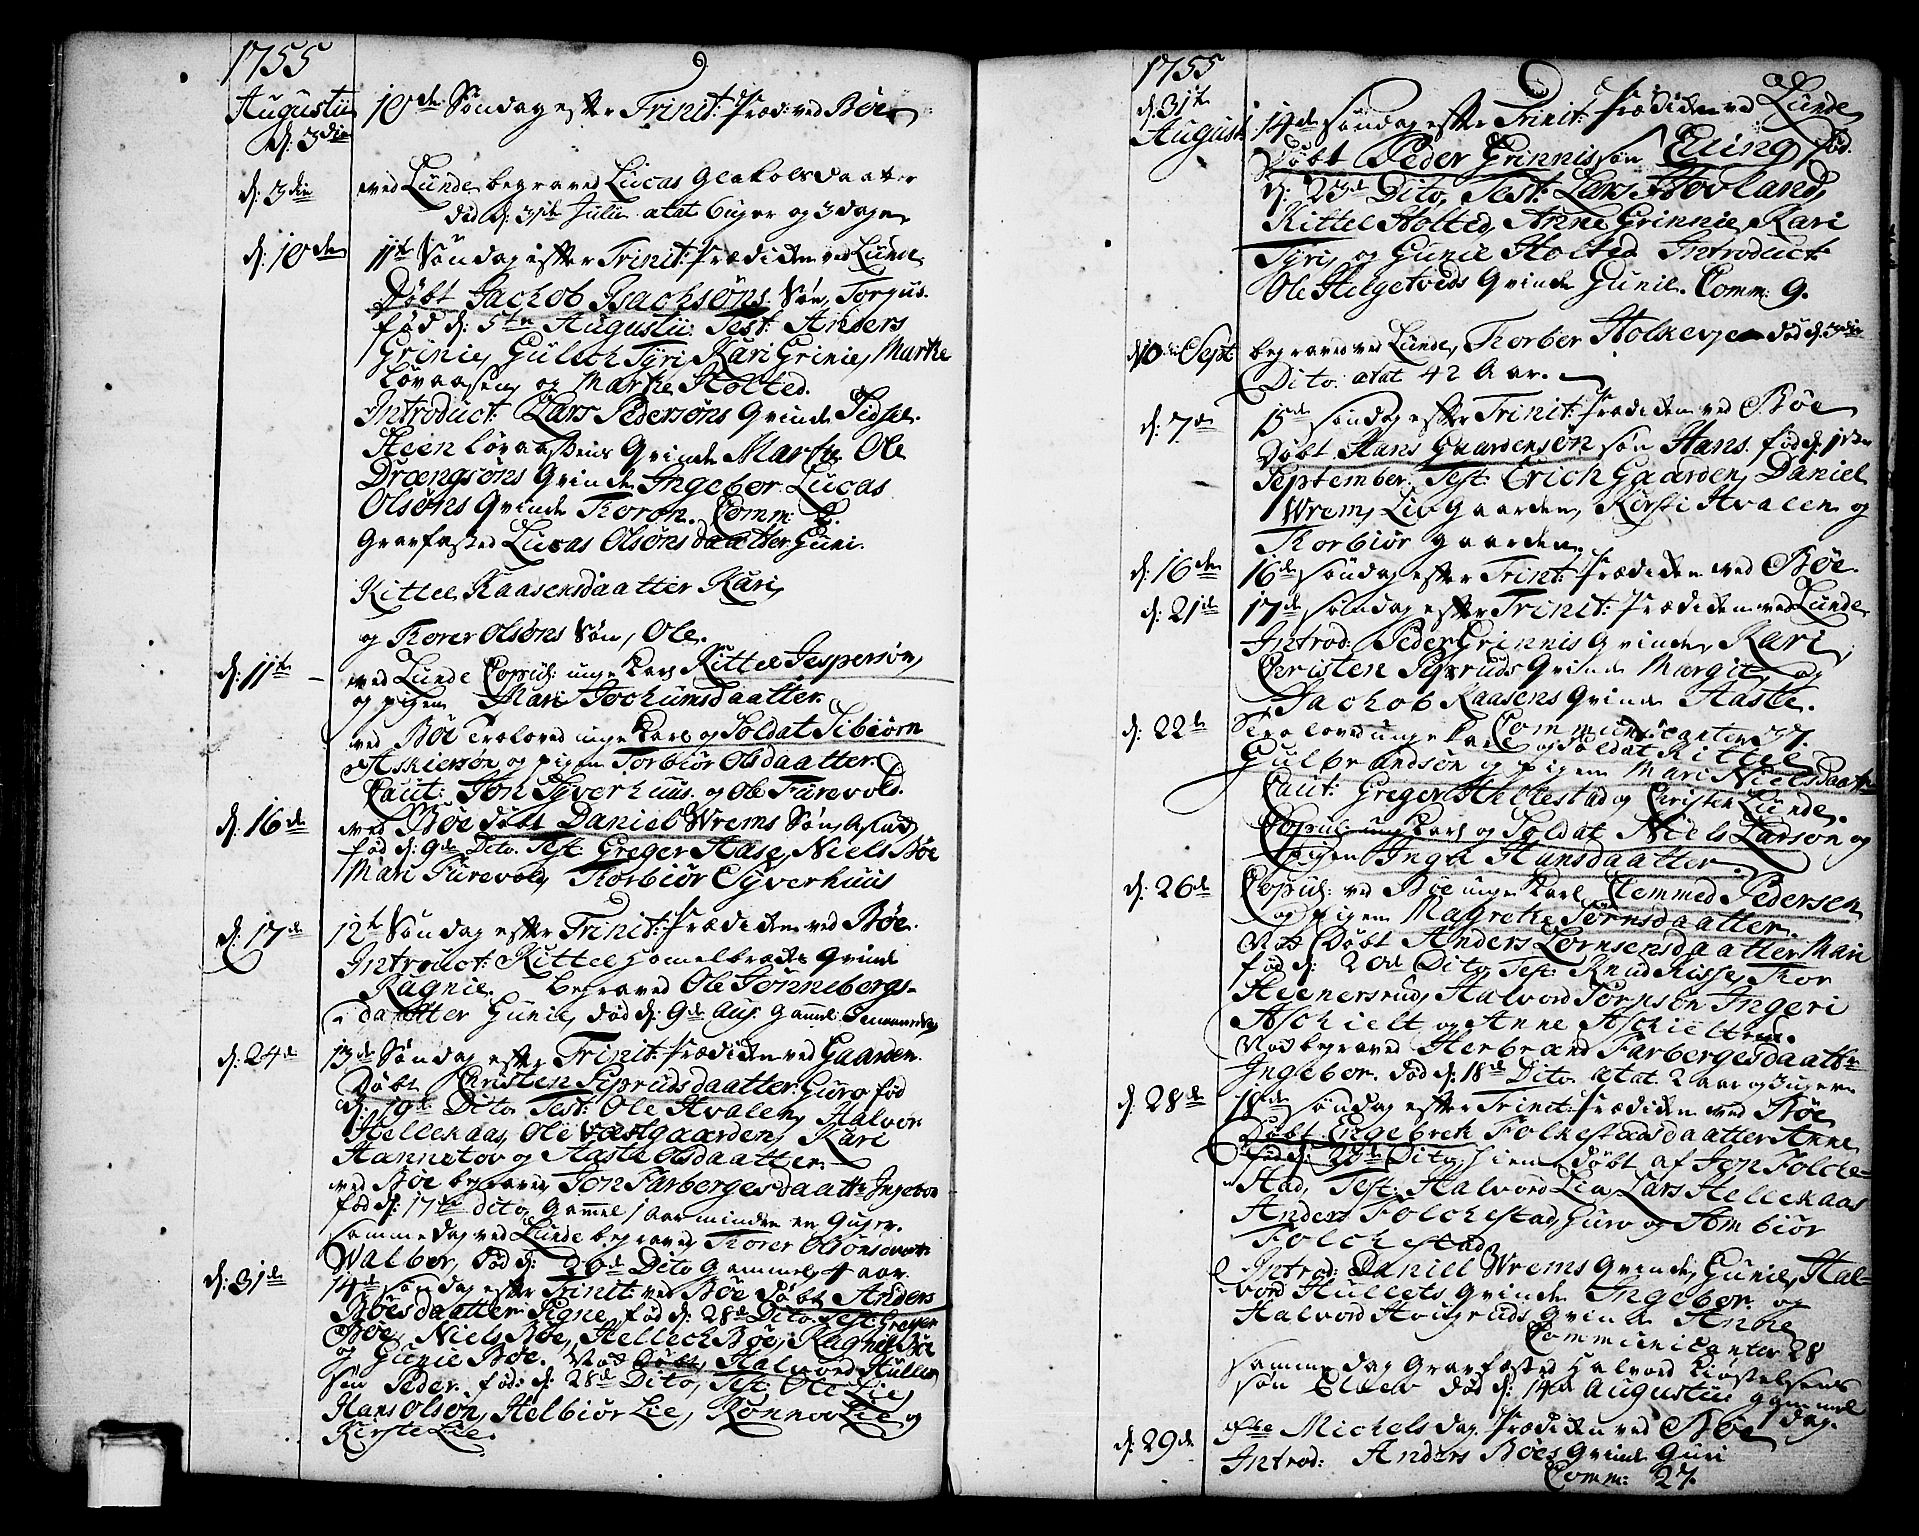 1755
Augustii d: 3die 10de Søndag efter Trinit: Præd: ved Bøe
d: 3die ved Lunde begraved Lucas daatter
død d: 31te Julii ætat 6 uger og 3 dage
d: 10de 11te Søndag efter Trinit: Prædiken ved Lunde
Døbt Jachob Isachsøns Søn, Torgus.
fød d: 5te Augustii: Test: Anders
Grinie, Gulich Tyri, Kari Grinie, Marthe
Løvaasen, og Marthe Holted.
Introduct: Lars Pedersøns Qvinde Sidsel
Steen Løvaasens Qvinde Marthe Ole
Drængsøns Qvinde Ingebor. Lucas
Olsøns Qvinde Thoron. Comm:
Gravfæsted Lucas Olsøns daatter Guni.
Kittel Kaasensdaatter Kari,
og Thorer Olsøns Søn, Ole.
d: 11te ved Lunde Copul: unge Karl Kittel Jespersøn,
og pigen Mari Jochumsdaatter.
ved Bøe Troloved unge Karl og Soldat Sibiørn
Askiersøn og pigen Torbiør Olsdaatter.
Caut: Jon Syverhuus. og Ole Furevold.
d: 16de ved Bøe døbt Daniel Wrems Søn Aslach
fød d: 9de Dito Test: Greger Aase, Niels Bøe
Mari Furevold, Thorbiør Syverhuus
d: 17de 12te Søndag efter Trinit: Prædiken ved Bøe.
Introduct: Kittel Homelbrechs Qvinde
Ragnie. begraved Ole Tønnebergs-
daatter Gunil, død d: 9de Aug. gammel
d: 24de 13de Søndag efter Trinit: Prædiken ved Gaarden.
Døbt Christen Sipruds daatter: Guro fød
d: 19de Dito Test: Ole Hvalen, Halvor
Hellekaas, Ole Vastgaarden, Kari
Hannetov og Aaste Olsdaatter.
ved Bøe begraved Jon Farbergesdaatter Ingebor
fød d: 17de dito, Gammel 1 aar minder en 6 uger.
samme dag ved Lunde begraved Thorer Olsøns
Walbor, død d: 20de Dito gammel 4 aar.
d: 31de 14de søndag efter Trinit: ved Bøe Døbt Anders
Bøesdaatter Signe, fød d: 28de Dito Test: Greger
Bøe, Niels Bøe, Hellech Bøe, Ragnil Bøe
og Gunil Bøe. Nok Døbt Halvord Hullets
søn Peder. fød: d: 28de Dito, Test: Ole Lie,
Hans Olsøn, Helbiør Lie, Rønnov Lie og
Kirste Lie.
1755
d: 31te August: 14de søndag efter Trinit: Prædiken ved Lunde
Døbt Peder Grinnis søn Eling, fød.
d: 23de Dito, Test: Lars Hovland,
Kittel Holted, Anne Grinnie, Kari
Tyri, og Gunil Holted. Introduct:
Ole Helgetveds Qvinde Gunil. Comm: 9.
d: Sept begraved ved Lunde, Thorber død d: 3die
Dito. ætat 42 Aar.
d: 7de 15de søndag efter Trinit: Prædiken ved Bøe
Døbt Hans Gaardensøn søn Hans. fød d: 1ste
September. Test: Erich Gaarden, Daniel
Wrem, Liv Gaarden, Kirsti Hvalen og
Thorbiør Gaarden.
d: 16de 16de søndag efter Trinit: Prædiken ved Bøe.
d: 21de 17de søndag efter Trinit: Prædiken ved Lunde
Introd: Peder Grinnis Qvinde Kari,
Christen Sipruds Qvinde Margit, og
Jachob Kaasens Qvinde Aaste.
Communicanter 37.
d: 22de Troloved unge Karl og Soldat Kittel
Gulbrandsøn og pigen Mari Nielsdaatter
Caut: Greger Aholtestad og Christen Lunde.
Copul: unge Karl og Soldat Niels Larsøn og
pigen Inger Hansdaatter.
d: 26de Copul: ved Bøe unge Karl Clemmed Pedersen
og pigen Magrethe Jørnsdaatter.
Nok Døbt Anders Lørnsensdaatter Mari
fød d: 20de Dito, Test: Knud Kisse, Thor
Steenersrud, Halvord Torpsøn, Ingeri
Aschielt og Anne Aschieltrud.
Nok begraved Herbrand Farbergesdaatter
Ingebor. død d: 18de Dito. ætat. 2 aar og 3 uger
d: 28de 18de søndag efter Trinit: Prædiken ved Bøe
Døbt Engebreth Folkestads daatter Anne
fød d: 20de Dito, hiem døbt af Jon Folche-
stad, Test: Halvord Lia, Lars Hellekaas
Anders Folchestad, Guro og Armbiør
Folchestad,
Introd: Daniel Wrems Qvinde, Gunil, Hal-
vord Hullets Qvinde Ingebor. og
Halvord Hougruds Qvinde Anne
Communicanter 28
samme dag Gravfæsted Halvord Liøstelsens
søn Ellev død d: 14de Augustii gammel
dag.
d: 29de Michels dag Prædiken ved Bøe
Introd: Anders Bøes Qvinde Guri
Comm: 27.